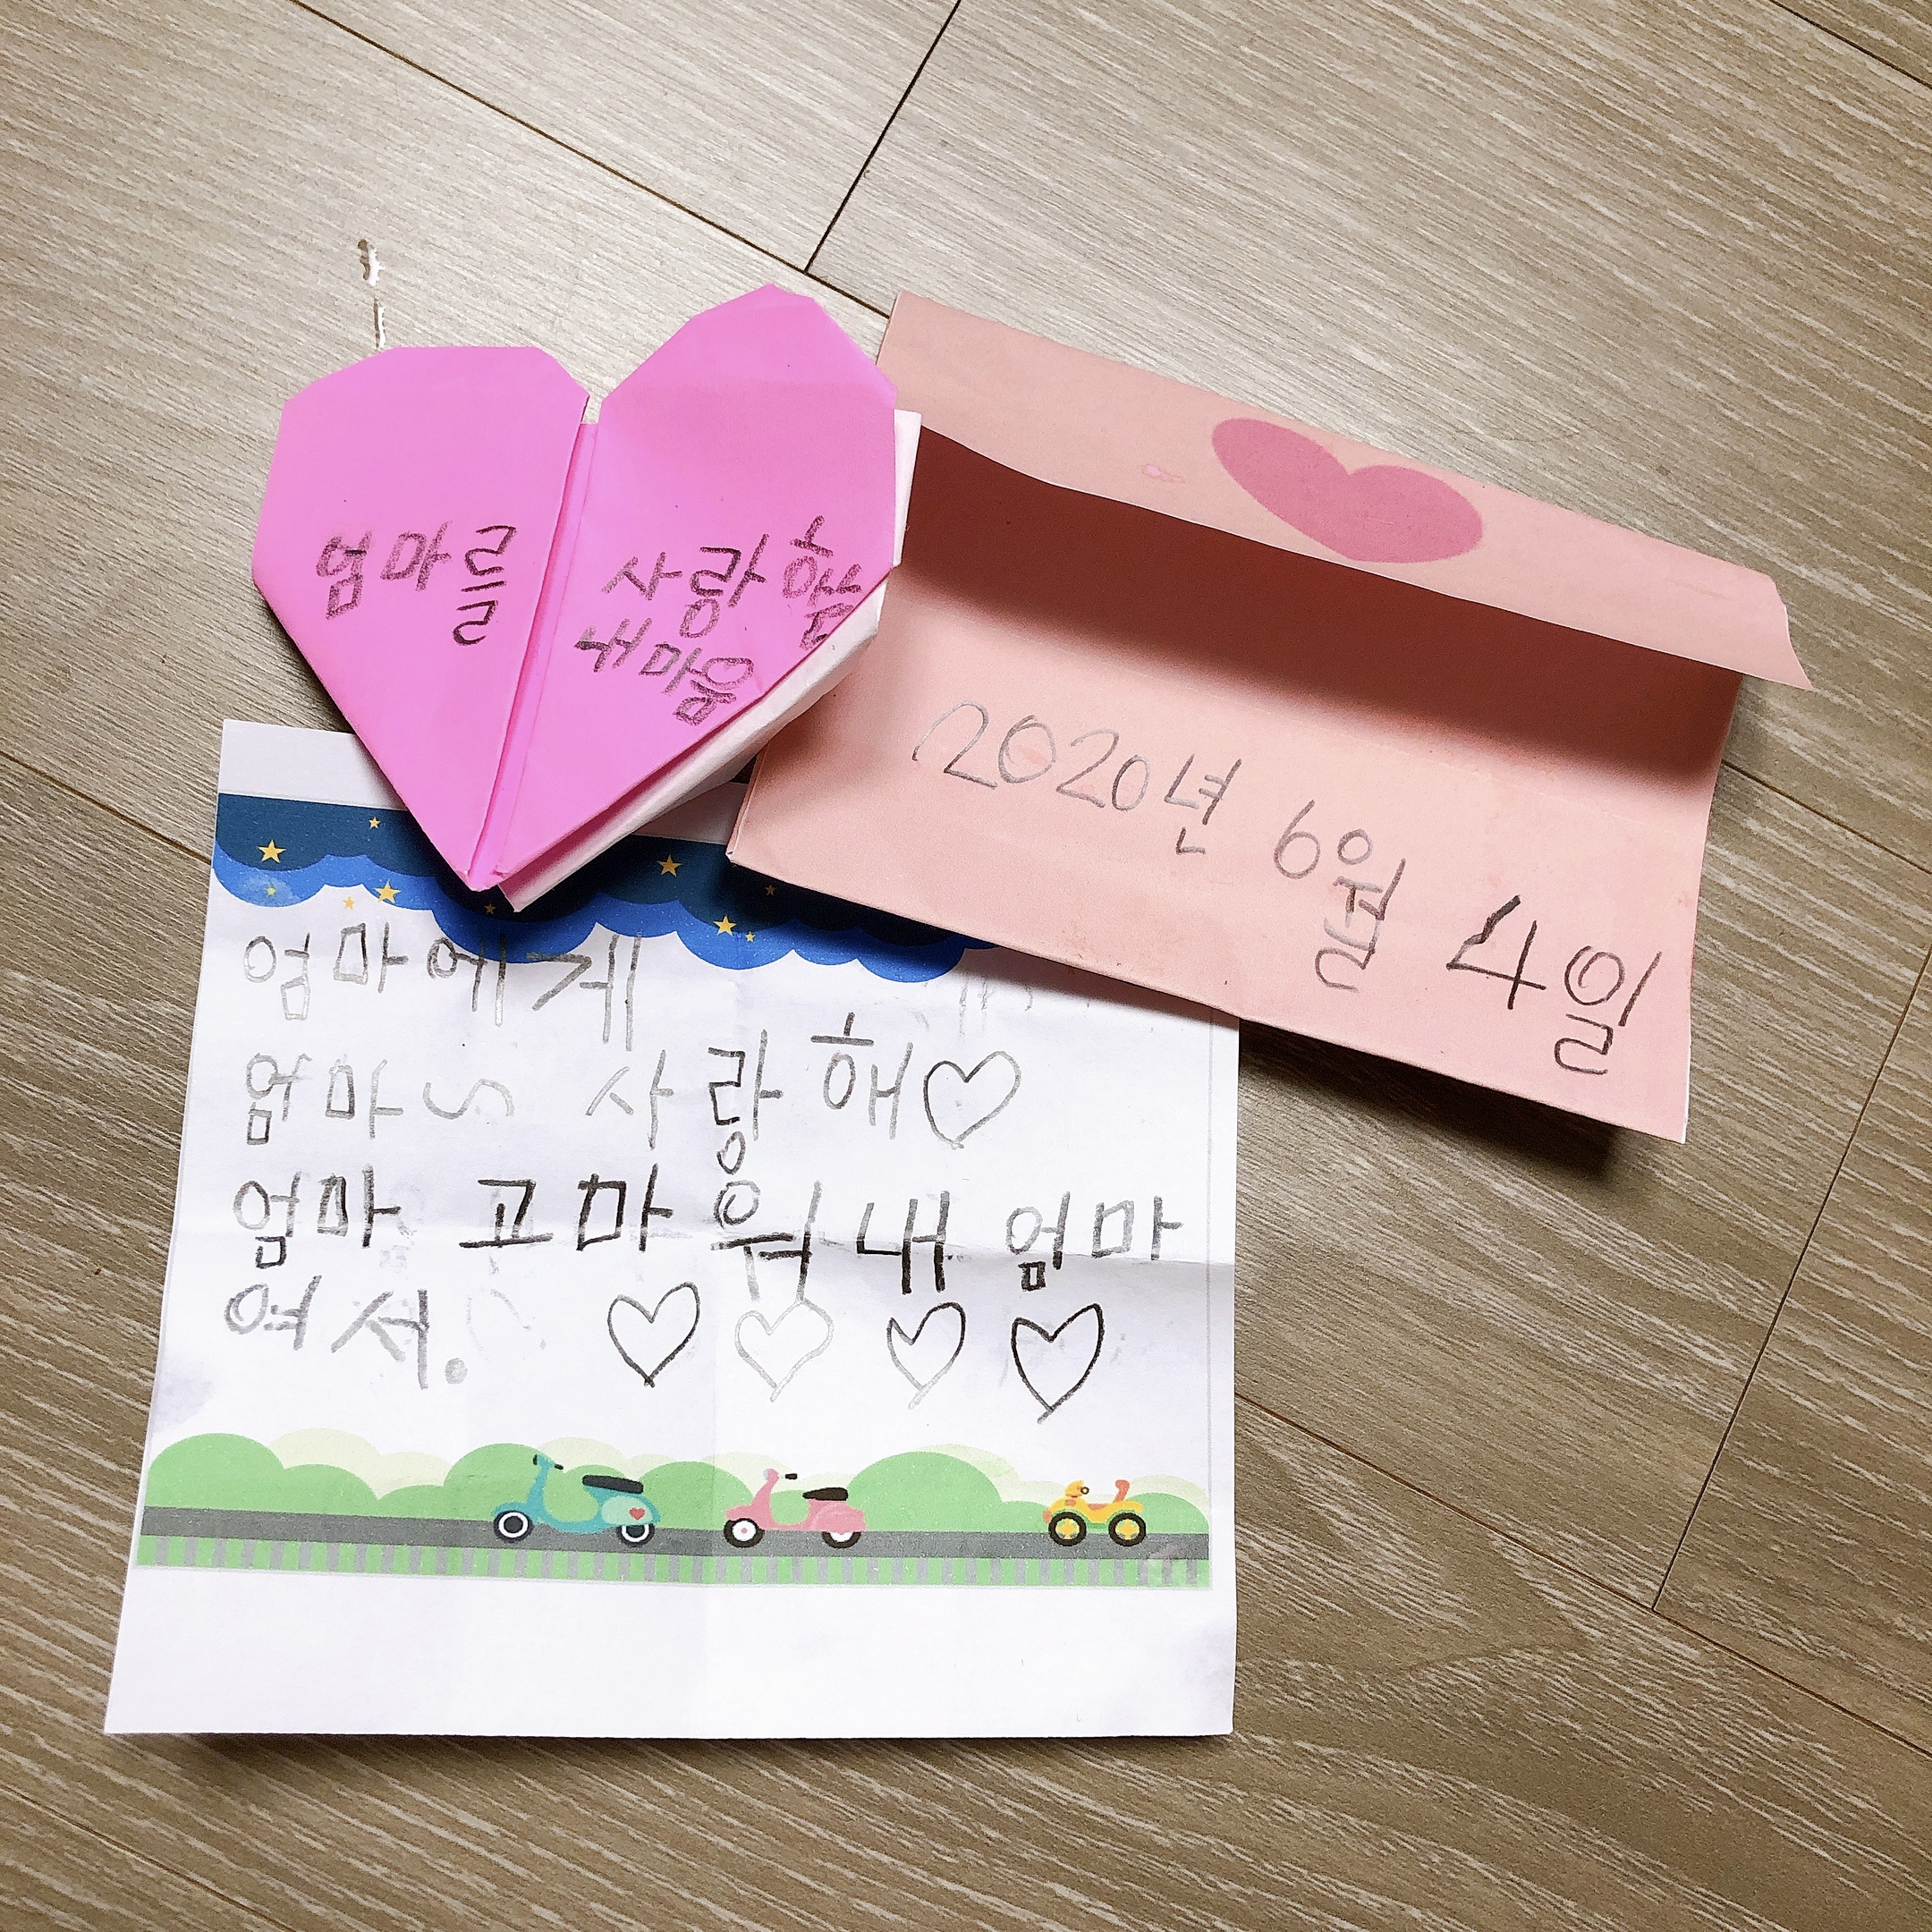 엄마를 사랑할
내마음
2020년 6월 4일
엄마에게
엄마~ 사랑해♡
엄마 고마워 내 엄마
여서. ♡ ♡ ♡ ♡